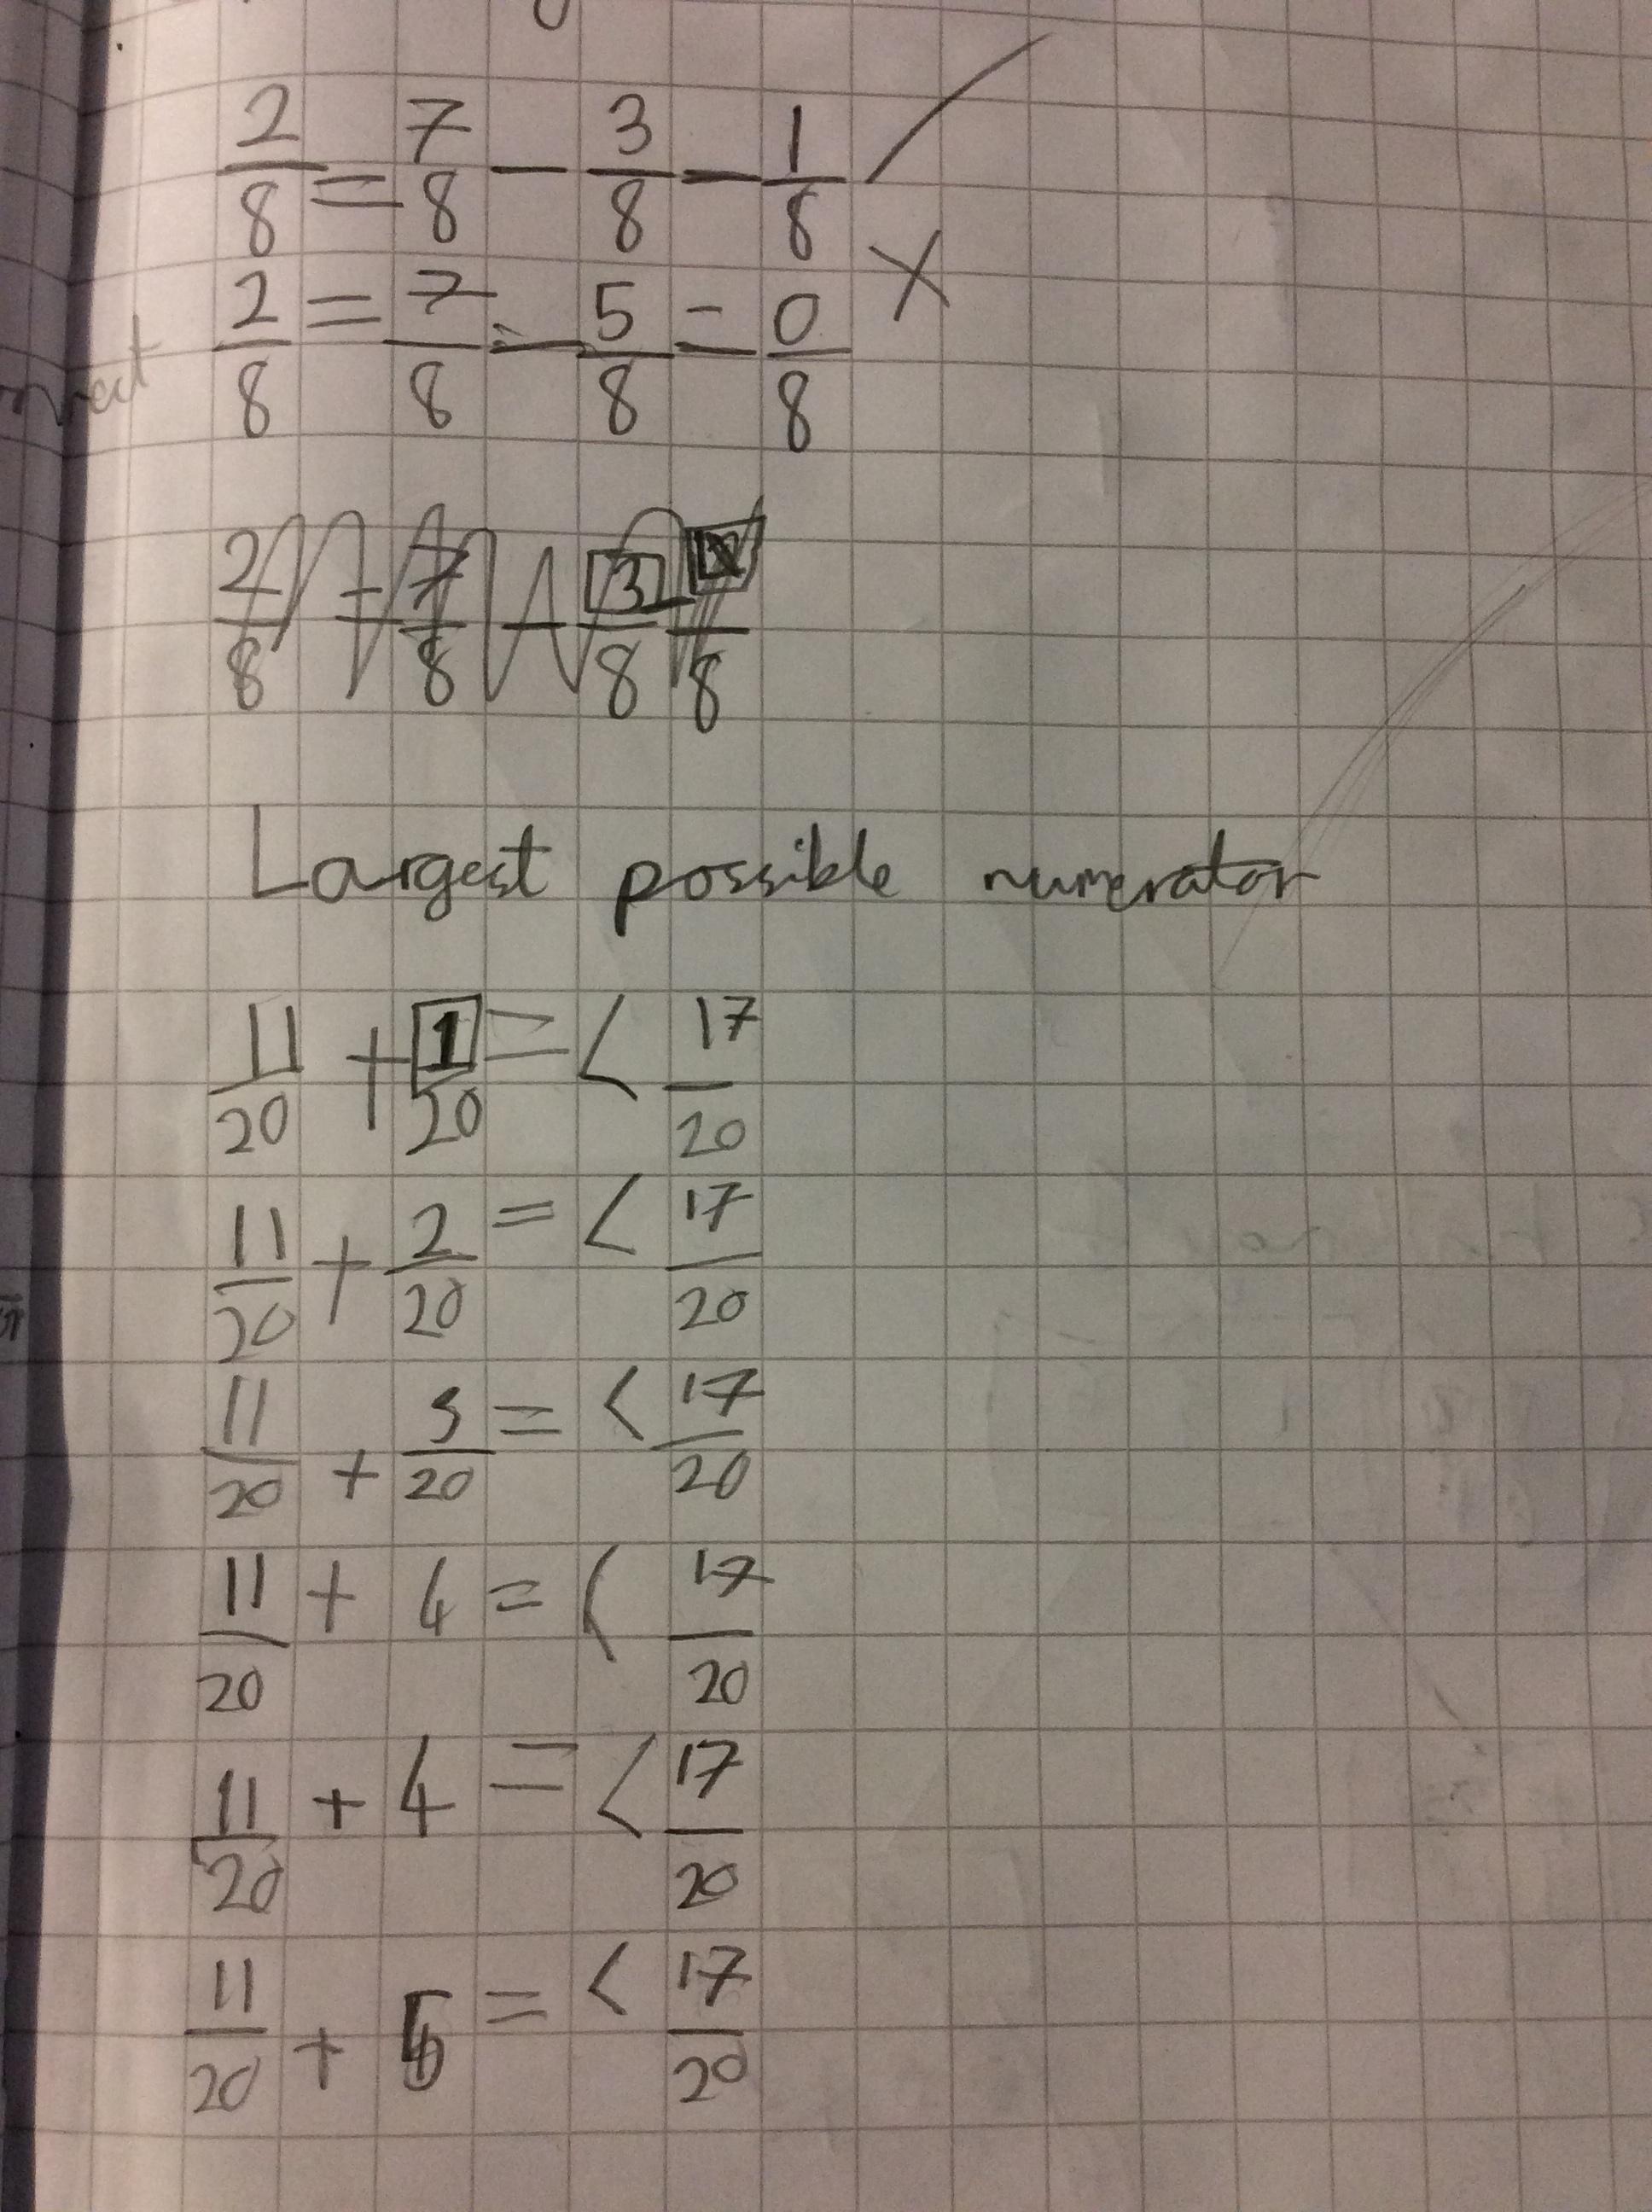 2/8 = 7/8 - 3/8 - 1/8
2/8 = 7/8 - 5/8 - 0/8 X
2/8 = 7/8 - 3/8 - /8
Largest possible numerator
11/20 + 1/20 = < 17/20
11/20 + 2/20 = < 17/20
11/20 + 3/20 = < 17/20
11/20 + 4 = < 17/20
11/20 + 4 = < 17/20
11/20 + 5 = < 17/20